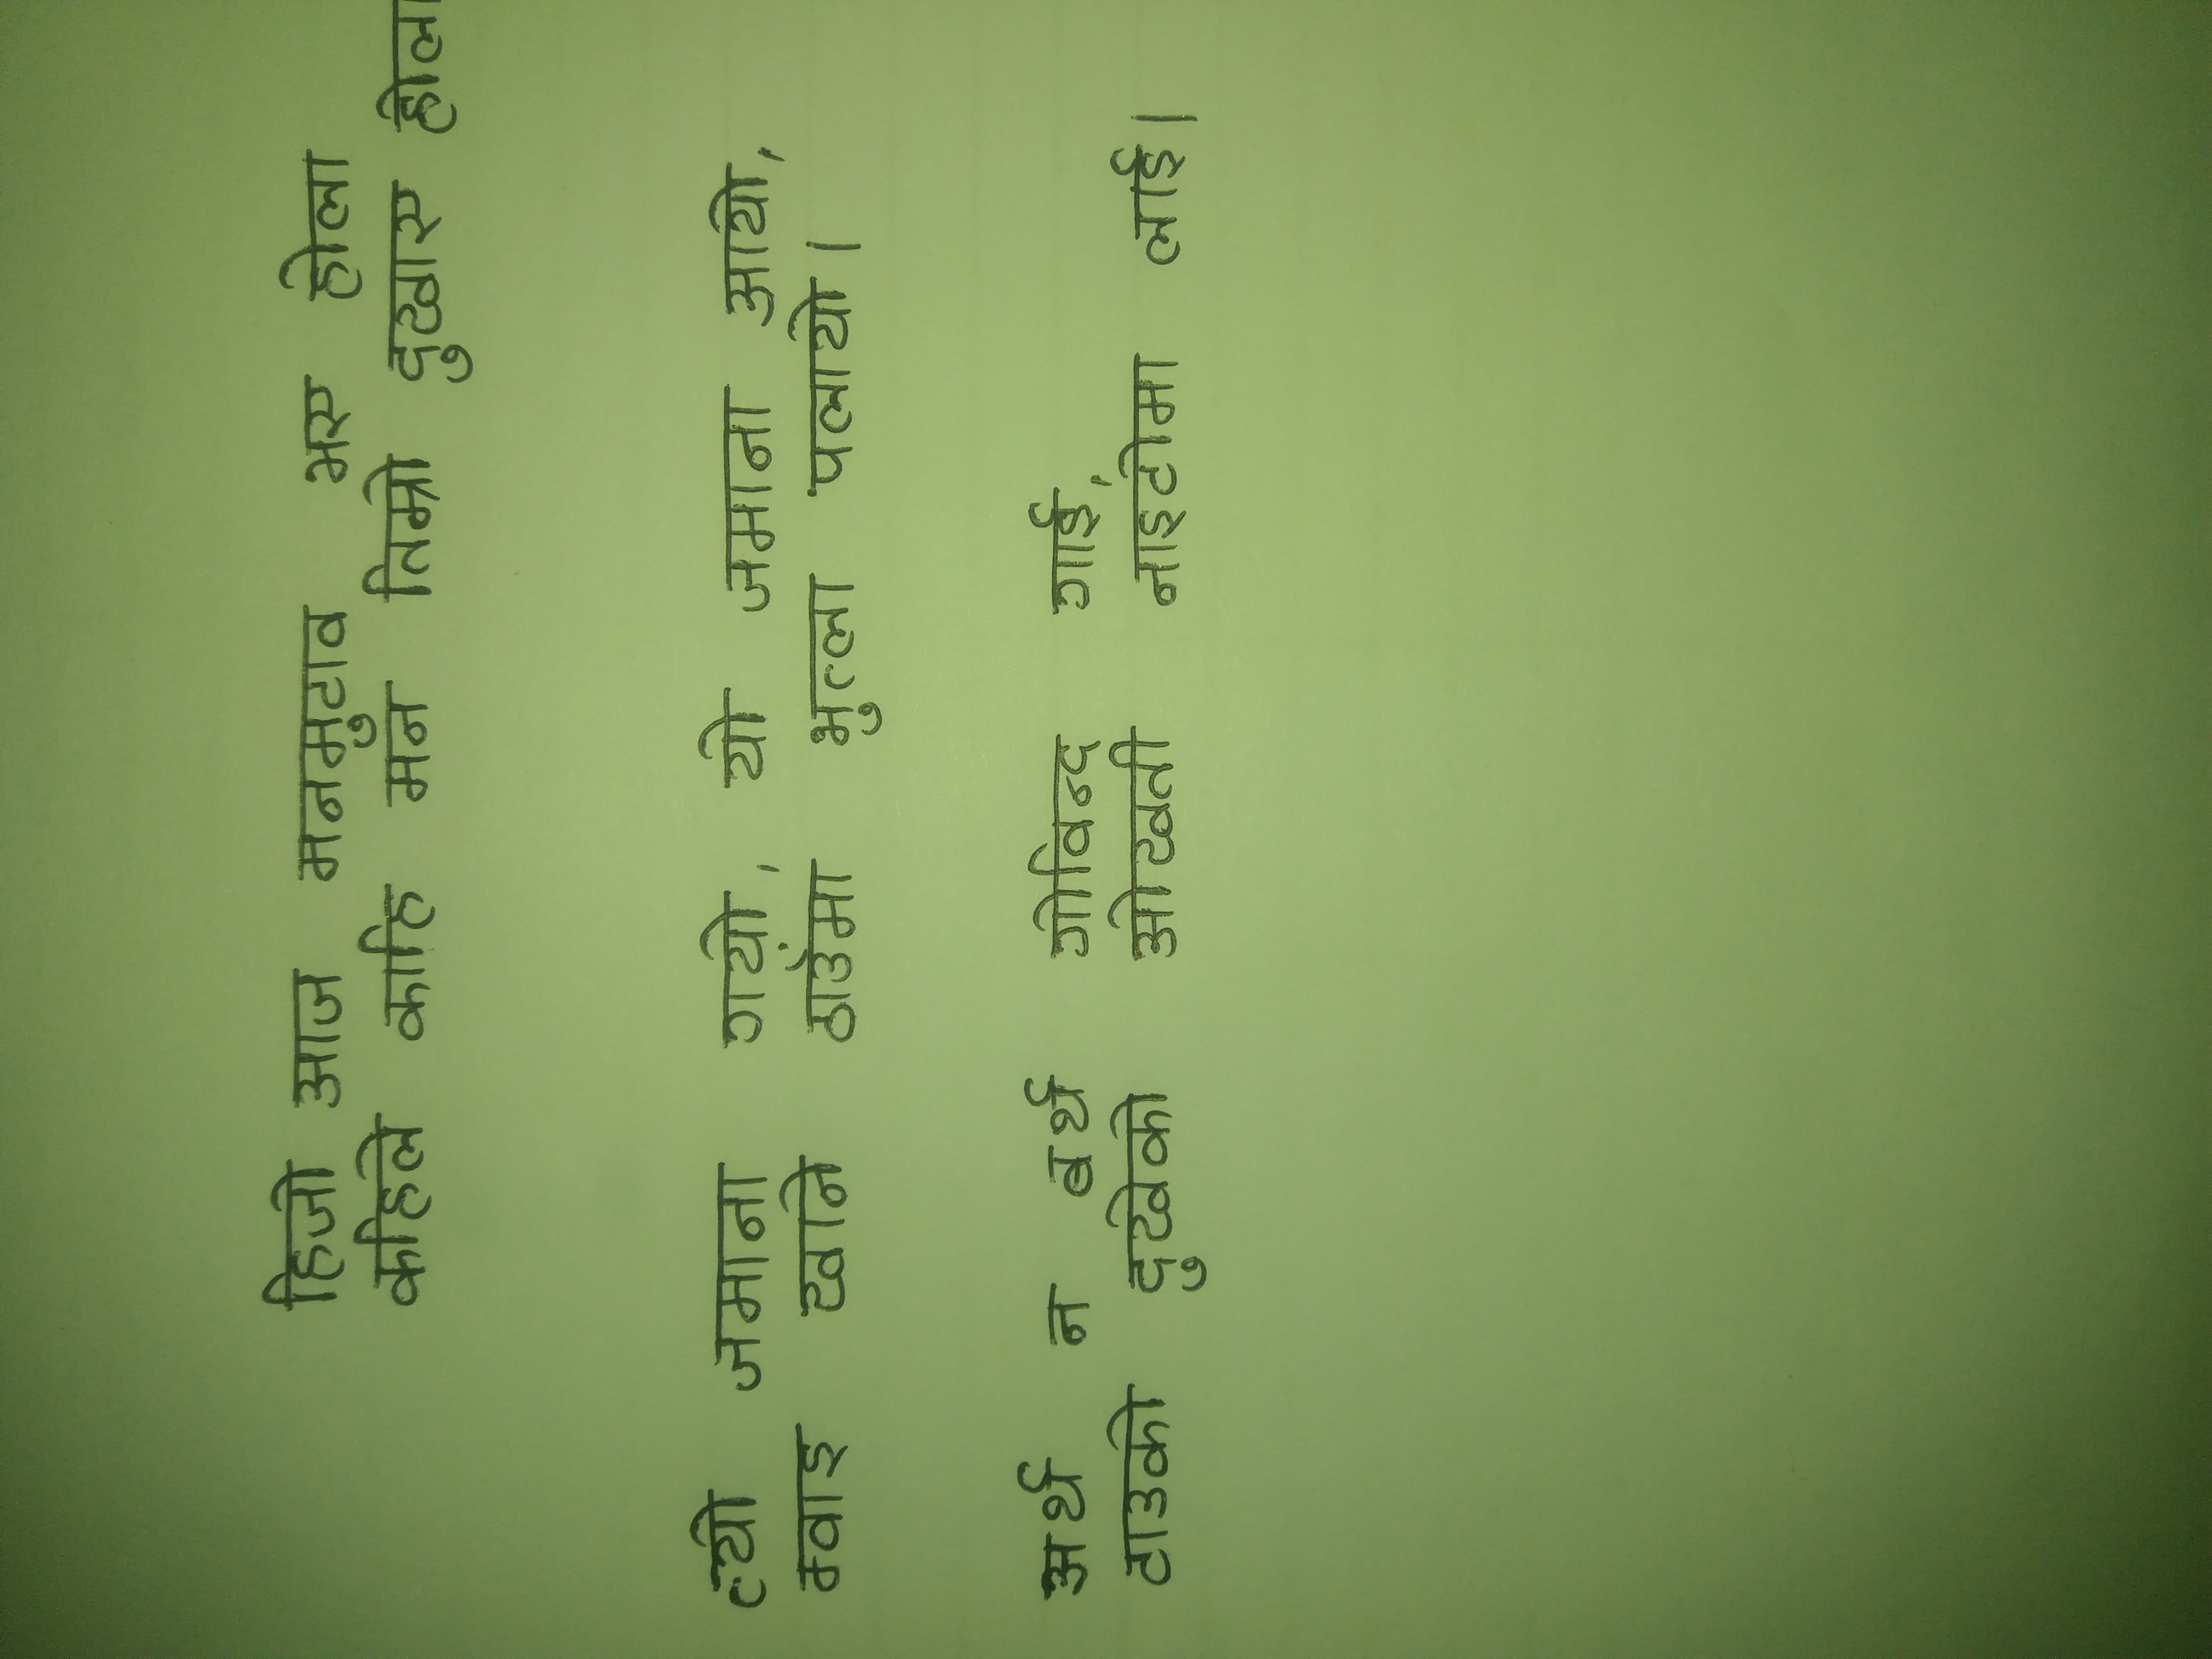 हिजो आज मनमुटाव भए होला
कहिले काहि मन तिम्रो दुखाए होला
त्यो जमाना गयो, यो जमाना आयो,
म्वाइ खाने ठाउँमा भुत्ला पलायो।
अर्थ न बर्थ गोविन्द गाई,
टाउको दुखेको ओखती नाइटोमा लाई।